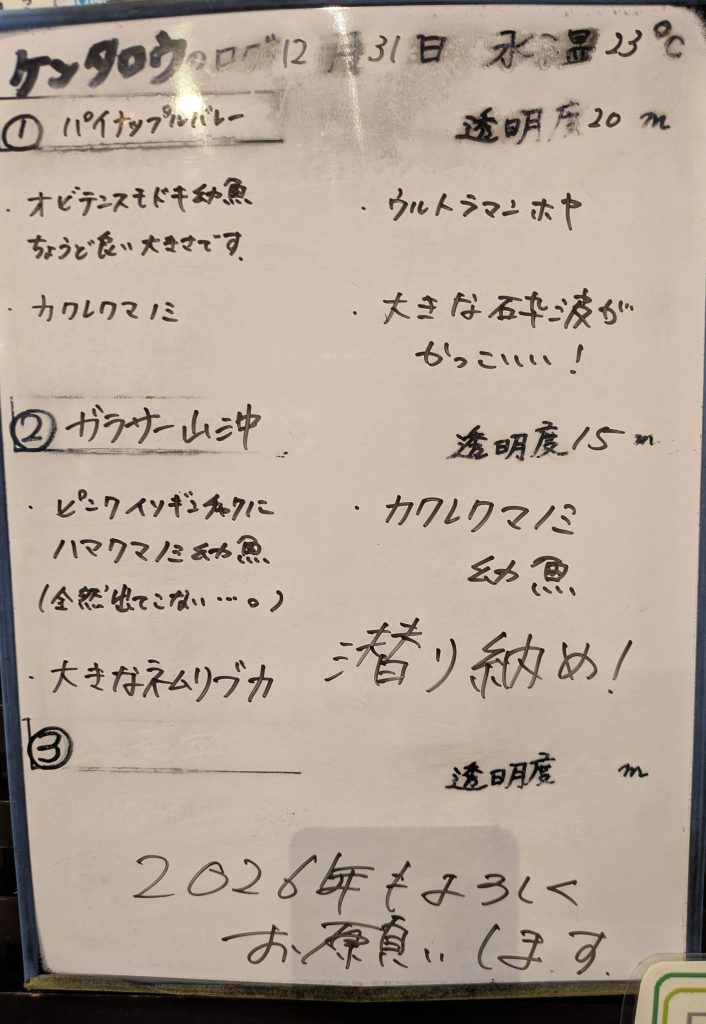 ケンタロウのログ 12月31日 水温23℃
① パイナップルバレー 透明度20m
・オビテンスモドキ幼魚
ちょうど良い大きさです
・カクレクマノミ
・ウルトラマンホヤ
・大きな砕波が
かっこいいい!
② ガラサー山沖 透明度15m
・ピンクイソギンチャクに
ハマクマノミ幼魚
(全然出てこない…。)
・大きなネムリブカ
・カクレクマノミ
幼魚
潜り納め!
③ 透明度 m
2026年もよろしく
お願いします.